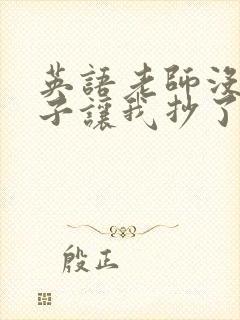 英語老師沒
子讓我抄了
殷正